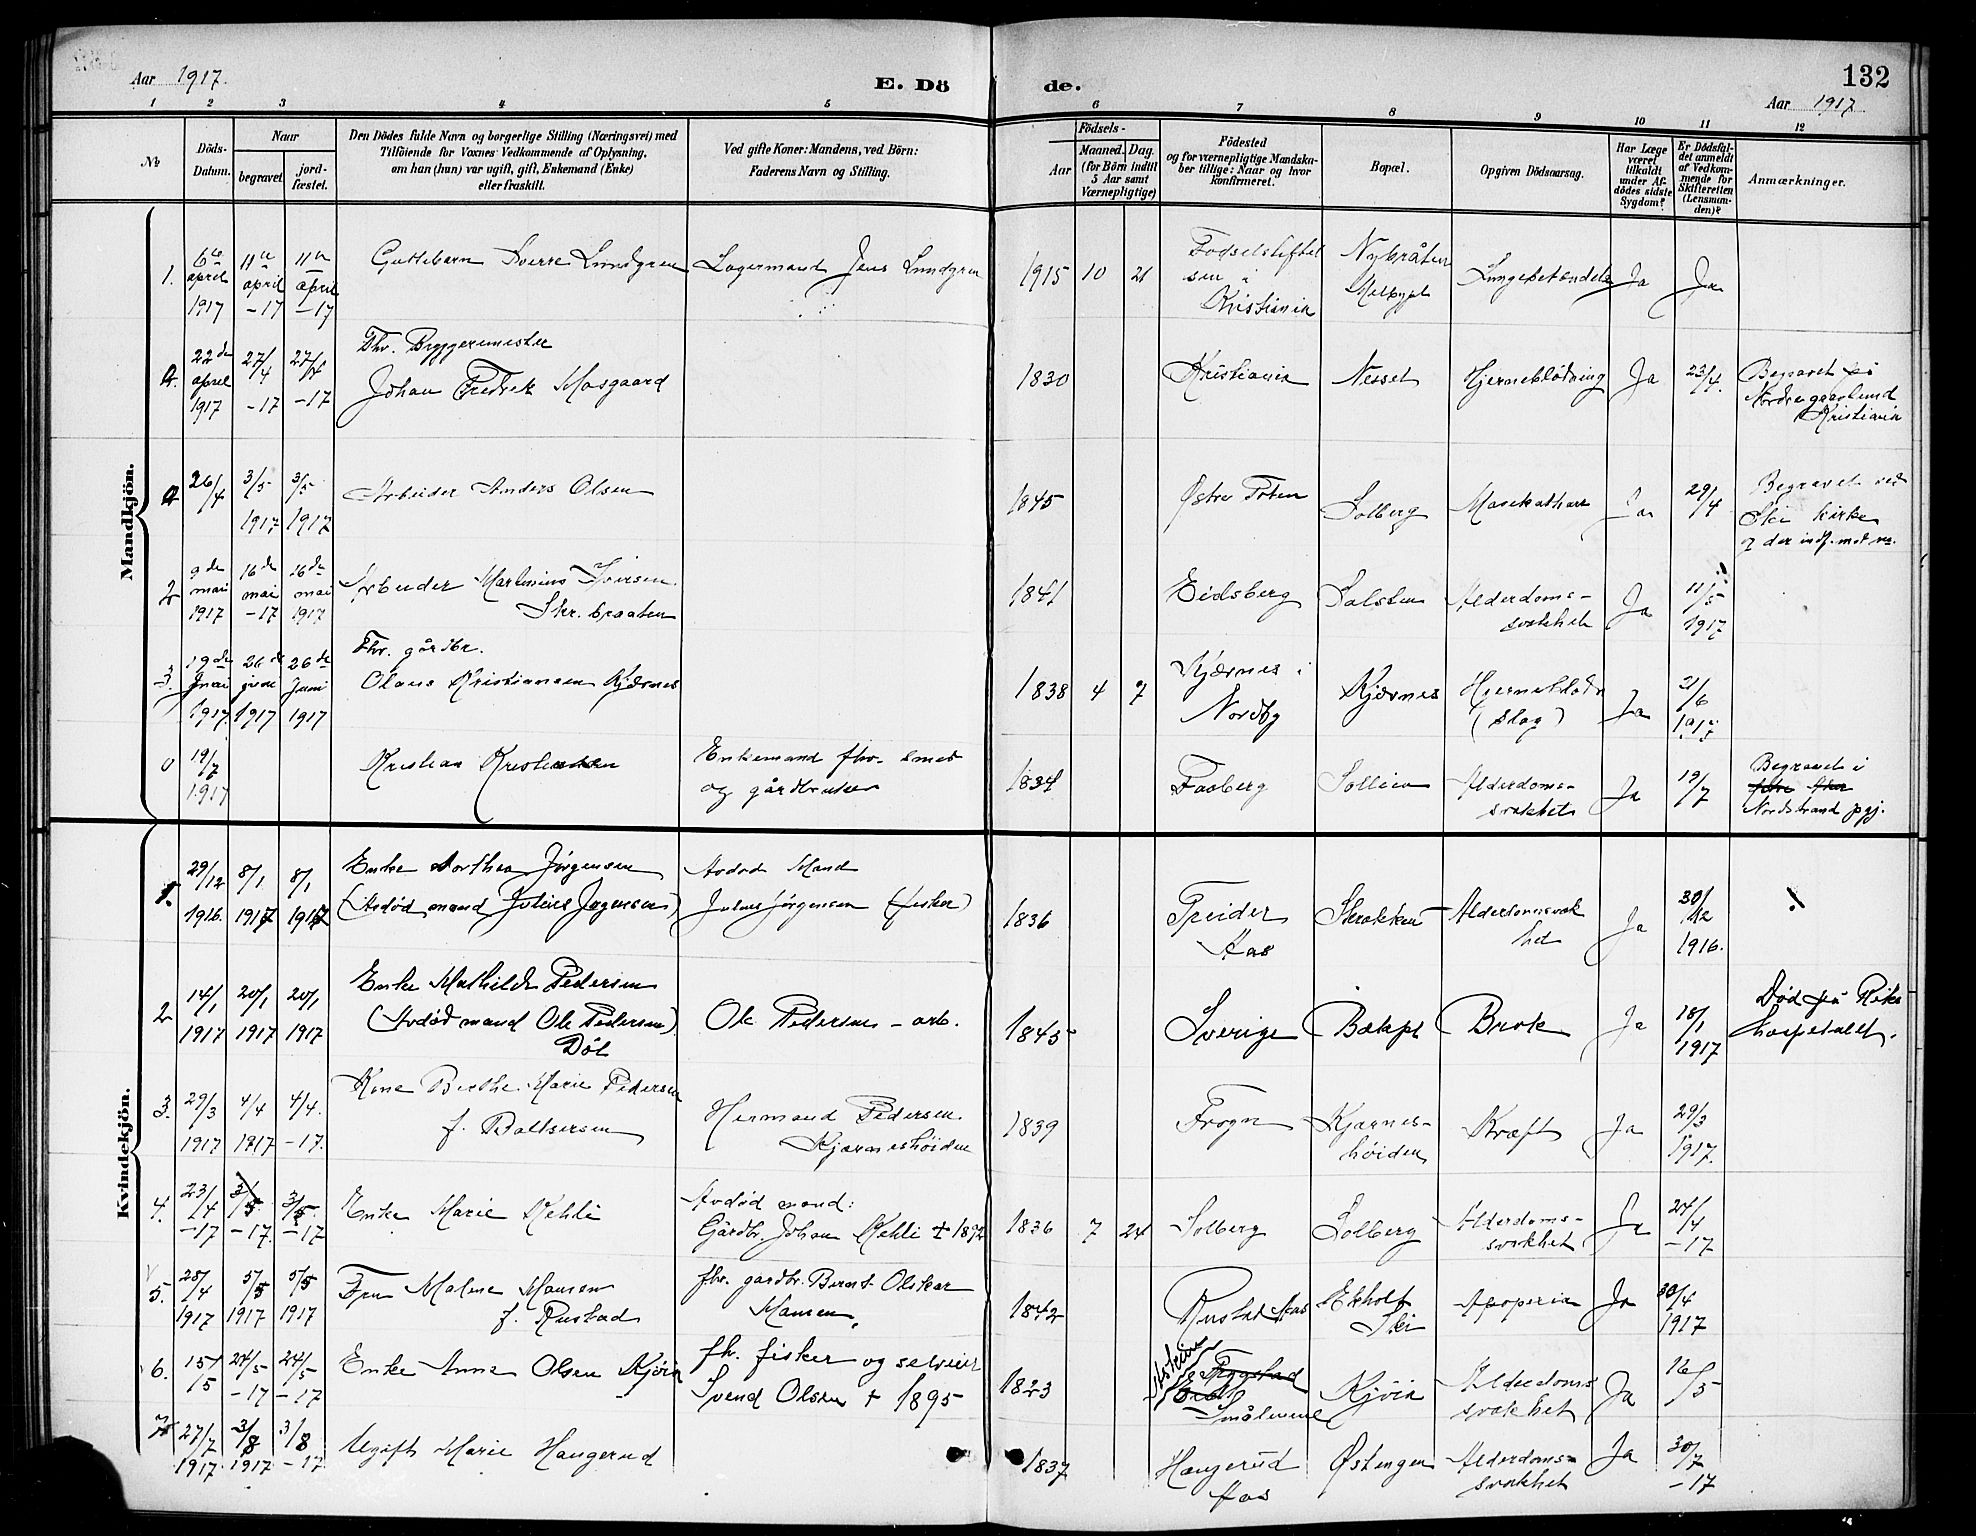 Aar 1917.
E. Dö
de.
132
Aar 1917
1 2 3 4 5 6 7 8 9 10 11 12
No
Döds-Datum.
Naar
begravet
jord-fæstet.
Den Dödes fulde Navn og borgerlige Stilling (Næringsvei) med
Tilföiende for Voxnes Vedkommende af Oplysning,
om han (hun) var ugift, gift, Enkemand (Enke)
eller fraskilt.
Ved gifte Koner: Mandens, ved Börn:
Faderens Navn og Stilling.
Födsels-
Aar
Maaned. Dag.
(for Börn indtil
5 Aar samt
Værnepligtige)
Födested
og for værnepligtige Mandska-
ber tillige: Naar og hvor
konfirmeret.
Bopæl.
Opgiven Dödsaarsag.
Har Læge
været
tilkaldt
under Af-
dödes sidste
Sygdom?
Er Dödsfal-
det anmeldt
af Vedkom-
mende for
Skifteretten
(Lensman-
den)?
Anmærkninger.
Mandkjön.
1. 6te april 1917 11te april -17 11te april -17 Guttebarn Sverre Lundgren Lagermand Jens Lundgren 1915 10 21 Fødselsstiftelsen i Kristiania Nybråten Ja Ja
22de april 1917 27/4 -17 27/4 -17 Fhv. Byggemester
Johan Fredrik Mosgaard 1830 Kristiania Nesset Hjerneblødning Ja 23/4. Begravet på
Nordre gravlund
Kristiania
26/4 3/5 1917 3/5 1917 Arbeider Anders Olsen 1845 Østre Toten Solberg Mavekatharr Ja 29/4 Begravet ved
Ski kirke
2 9de mai 1917 16de mai -17 16de mai 1917 Arbeider Martinius Iversen
Skr. braaten 1841 Eidsberg Dalsten Alderdoms-
svakhet Ja 11/5 1917
3. 19de 1917 26de juni 1917 26de Juni 1917 Fhv. gårdbr.
Olaus Kristiansen Kjærnes 1838 4 7 Kjærnes i
Nordby Kjærnes (slag) Ja 21/6 1917
0 19/7 1917 Kristian Kristiansen Enkemand fhv. smed
og gårdbruker 1834 Faaberg Sollien Alderdoms-
svakhet Ja 19/7 Begravet i
Nordstrand pgj.
Kvindekjön.
1. 29/12 1916. 8/1 1917 8/1 1917 Enke Dorthea Jörgensen
(Avdöd mand Julius Jörgensen) Avdød Mand
Julius Jörgensen (fisker) 1836 Treider
Aas Skrokken Alderdomssvak
hed Ja 30/12 1916.
2 14/1 1917 20/1 1917 20/1 1917 Enke Mathilde Pedersen
(Avdöd mand Ole Pedersen)
Döl Ole Pedersen - arb. 1845 Sverige Brok Ja 18/1 1917 Död på Riks
hospitalet.
3. 29/3 1917 4/4 1917 4/4. -17. Kone Berthe Marie Pedersen
f. Baltsersen Hermand Pedersen
Kjærneshöiden 1839 Frogn Kjærnes-
höiden Kræft Ja 29/3 1917.
4. 23/4 -17 3/5 -17. 3/5. -17 Enke Marie Kehli Avdöd mand:
Gårdbr. Johan Kehli + 1892 1836 7 24 Solberg Solberg Alderdoms-
svakhet Ja 24/4 -17
5. 28/4 1917 5/5 1917 5/5 1917 Fru Maline Mansen
f. Rustad fhv. gardbr. Bernt Olskar
Mansen. 1842 Rustad Aas Ekholt
Ski Apoperia Ja 30/4 1917
6. 15/5 24/5 -17 24/5 -17 Enke Anne Olsen Kjövin fh. fisker og selveier
Svend Olsen + 1895 1823 Askim
Trygstad
Smålenene Kjövin Alderdoms
svakhet Ja 16/5
7 27/7 1917 3/8 1917 3/8 -17 Ugift Marie Haugerud 1837 Haugerud
Aas Østengen Alderdoms-
svakhet Ja 30/7 -17